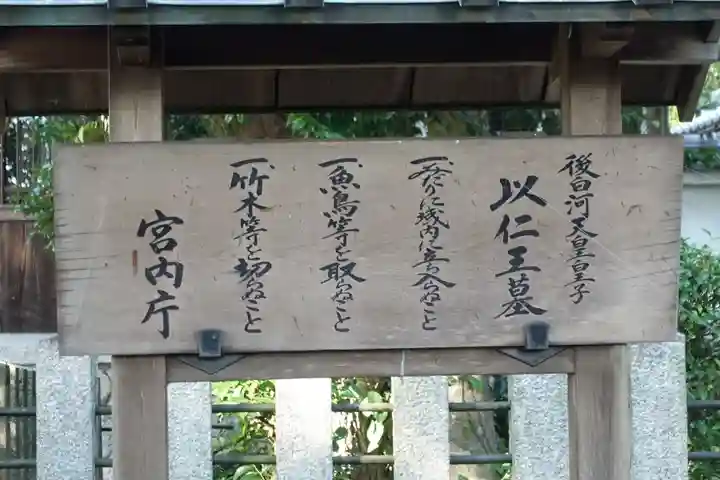 後白河天皇皇子
以仁王墓
一、みだりに域内に立ち入らぬこと
一、魚鳥等を取らぬこと
一、竹木等を切らぬこと
宮内庁